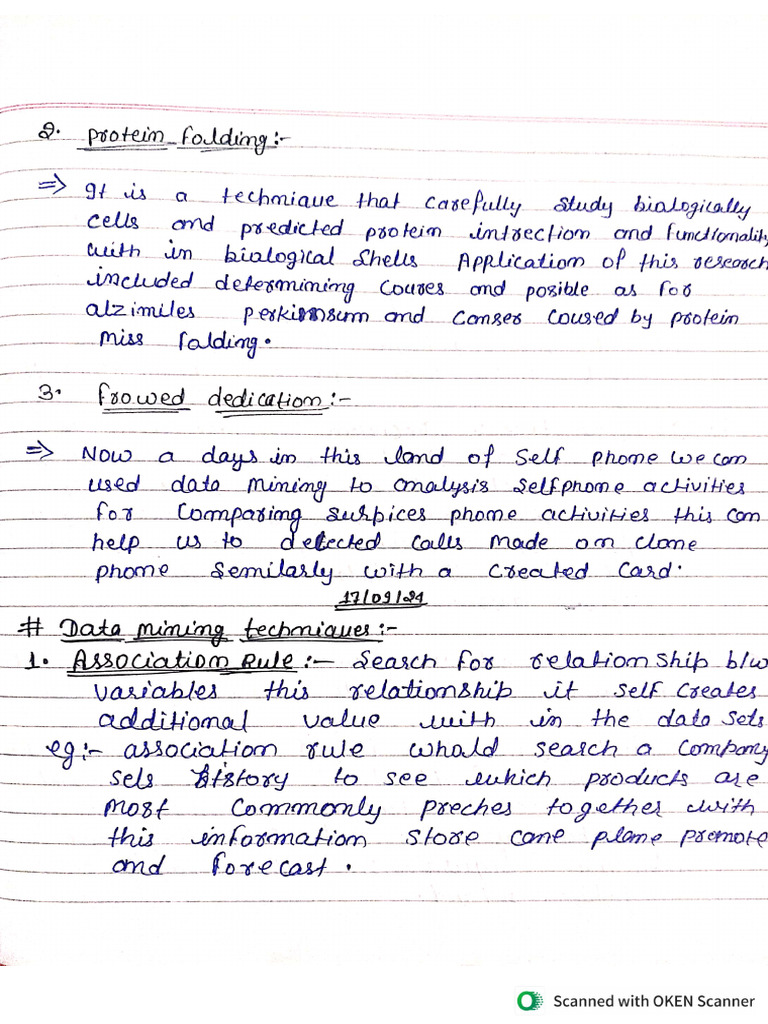 2. Protein folding:-
=> It is a technique that carefully study biologically
cells and predicted protein intrection and functionality
with in biological shells Application of this research
included determining Coures and posible as for
alzimiles perkinsum and Conser Coused by protein
miss falding.
3. frowed dedication:-
=> Now a days in this land of Self phone we can
used data mining to analysis selfphone activities
for Comparing surpices phone activities this can
help us to detected calls made on clone
phone Semilarly with a Created Card.
17/09/24
# Data mining techniques:-
1. Association Rule:- Search for relationship b/w
variables this relationship it self Creates
additional value with in the data sets
eg:- association rule whald search a Company
sels history to see which products are
most Commonly preches together with
this information store cane plane promote
and forecast.
Scanned with OKEN Scanner